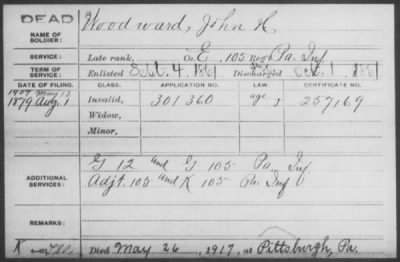 DEAD
NAME OF SOLDIER:
Woodward, John H
SERVICE:
Late rank, Co. E, 105 Reg't Pa. Inf
TERM OF SERVICE:
Enlisted Sept. 4, 1861 Discharged Oct. 1, 1861
DATE OF FILING. CLASS. APPLICATION NO. LAW. CERTIFICATE NO.
1907 May 13
1879 Aug. 1 Invalid, 301360 257169
Widow,
Minor,
ADDITIONAL SERVICES:
G 12 and G 105 Pa Inf
Adjt. 105 and K 105 Pa. Inf
REMARKS:
Died May 26, 1917, at Pittsburgh, Pa.